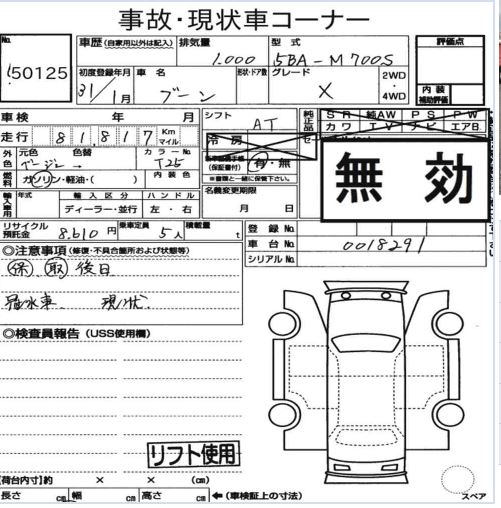 事故・現状車コーナー
No. 50125
車歴 (自家用以外は記入) 排気量 1.000 型式 5BA-M700S 評価点
初度登録年月 31/1月 車名 ブーン 形状・ドア数 グレード X 2WD・4WD 内装補助評価
車検 年 月 シフト AT 純正品 SR 純AW PS PW
カワ TV ナビ エアB
走行 81.817 Km マイル 冷房
外色 元色 ベージュ 色替 カラーNo. T25 (保証書付) 有・無
※書類と一緒に保管下さい。
無効
燃料 ガソリン・軽油・( ) 内装色 名義変更期限
輸入車用 年式 輸入区分 ハンドル 月 日
ディーラー・並行 左・右
リサイクル預託金 8,610円 乗車定員 5人 積載量 t 登録No.
車台No. 0018291
シリアルNo.
◎注意事項 (修復・不具合箇所および状態等)
保 取 後日
冠水車 現状
◎検査員報告 (USS使用欄)
リフト使用
【荷台内寸】約 × × (cm)
長さ cm 幅 cm 高さ cm ←(車検証上の寸法) スペア